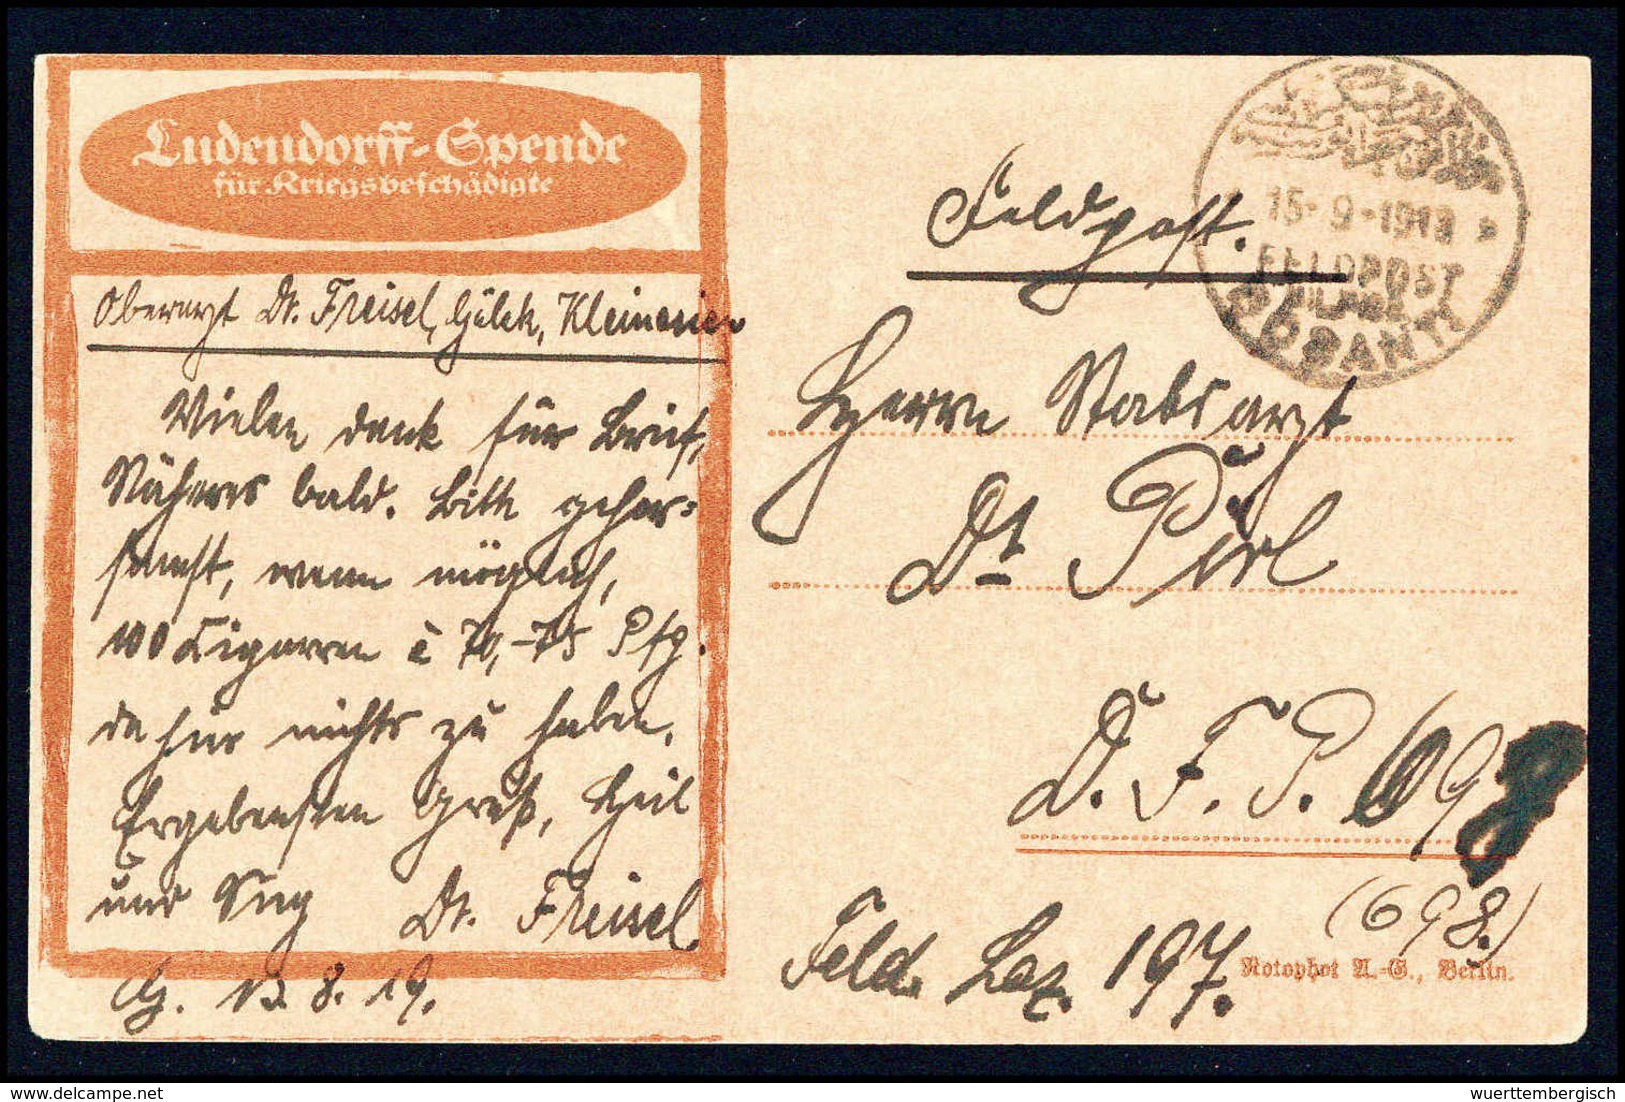 Ludendorff-Spende
für Kriegsbeschädigte
Oberarzt Dr. Freisel, Gülek, Kleinasien
Vielen Dank für Brief,
Näheres bald. Bitte gehor-
samst, wenn möglich,
100 Zigarren à 70,-75 Pfg.
da hier nichts zu haben.
Ergebensten Gruß, Heil
und Sieg Dr. Freisel
G. 13. 8. 19.
Feldpost.
15-9-1918
FELDPOST
BOSANTI
Herrn Stabsarzt
Dr. Pürl
D. F. P. 698
(698.)
Feld. Laz. 197.
Rotophot A.-G., Berlin.
delcampe.net
wuerttembergisch